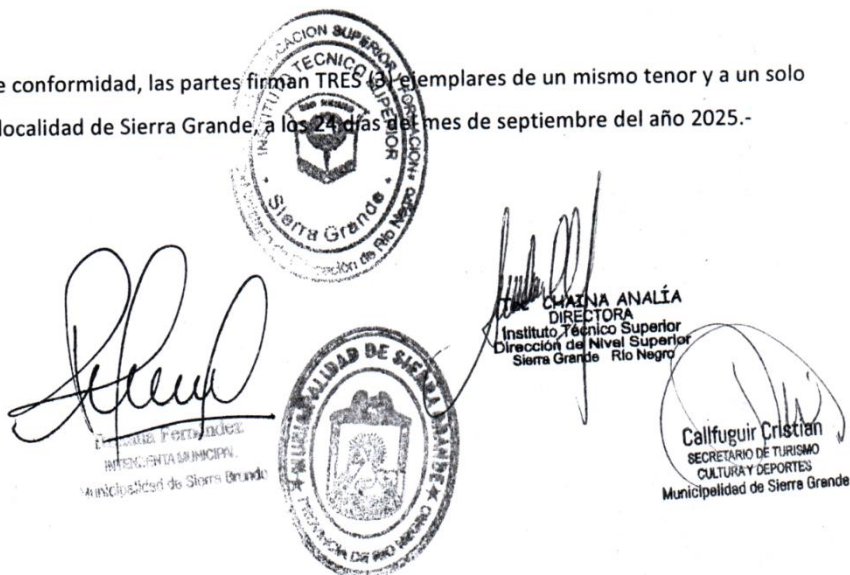 e conformidad, las partes firman TRES (3) ejemplares de un mismo tenor y a un solo
localidad de Sierra Grande, a los 24 días del mes de septiembre del año 2025.-
INSTITUTO TECNICO SUPERIOR
Sierra Grande
Tec CHAINA ANALÍA
DIRECTORA
Instituto Técnico Superior
Dirección de Nivel Superior
Sierra Grande Río Negro
Fernández
INTENDENTA MUNICIPAL
Municipalidad de Sierra Grande
MUNICIPALIDAD DE SIERRA GRANDE
PROVINCIA DE RIO NEGRO
Callfuguir Cristian
SECRETARIO DE TURISMO
CULTURA Y DEPORTES
Municipalidad de Sierra Grande